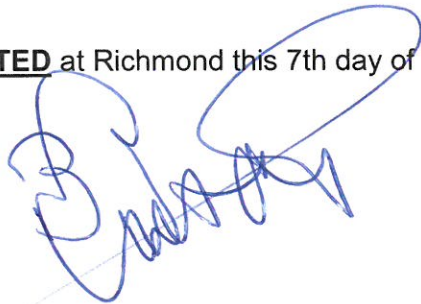 TED at Richmond this 7th day of